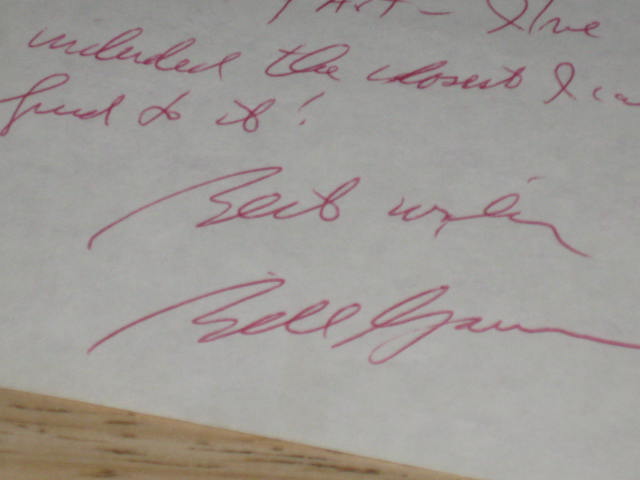 Art - I've
included the closest I can
find to it!
Best wishes
Bill Gaines